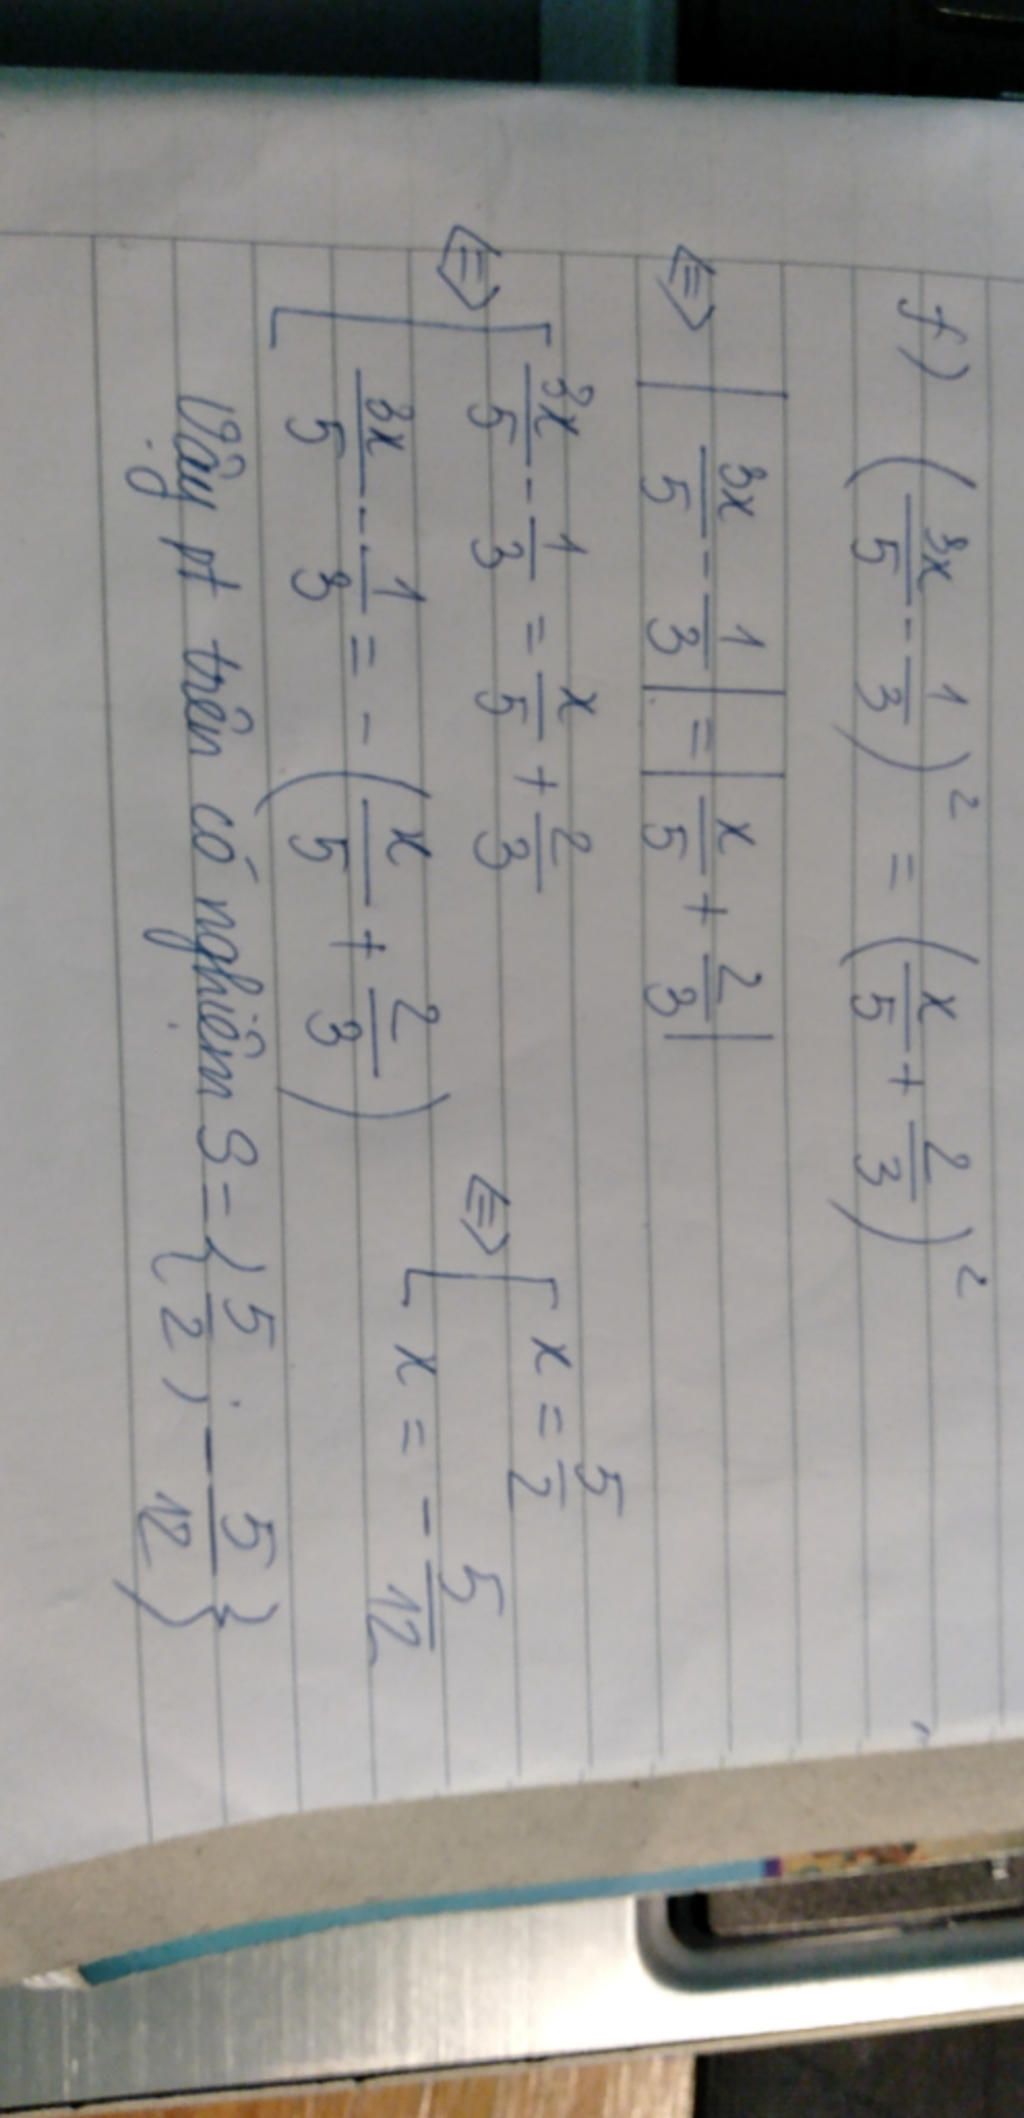 f) (3x/5 - 1/3)² = (x/5 + 2/3)²
⇔ |3x/5 - 1/3| = |x/5 + 2/3|
⇔ [ 3x/5 - 1/3 = x/5 + 2/3
3x/5 - 1/3 = - (x/5 + 2/3)
⇔ [ x = 5/2
x = - 5/12
Vậy pt trên có nghiệm S = {5/2 ; - 5/12}